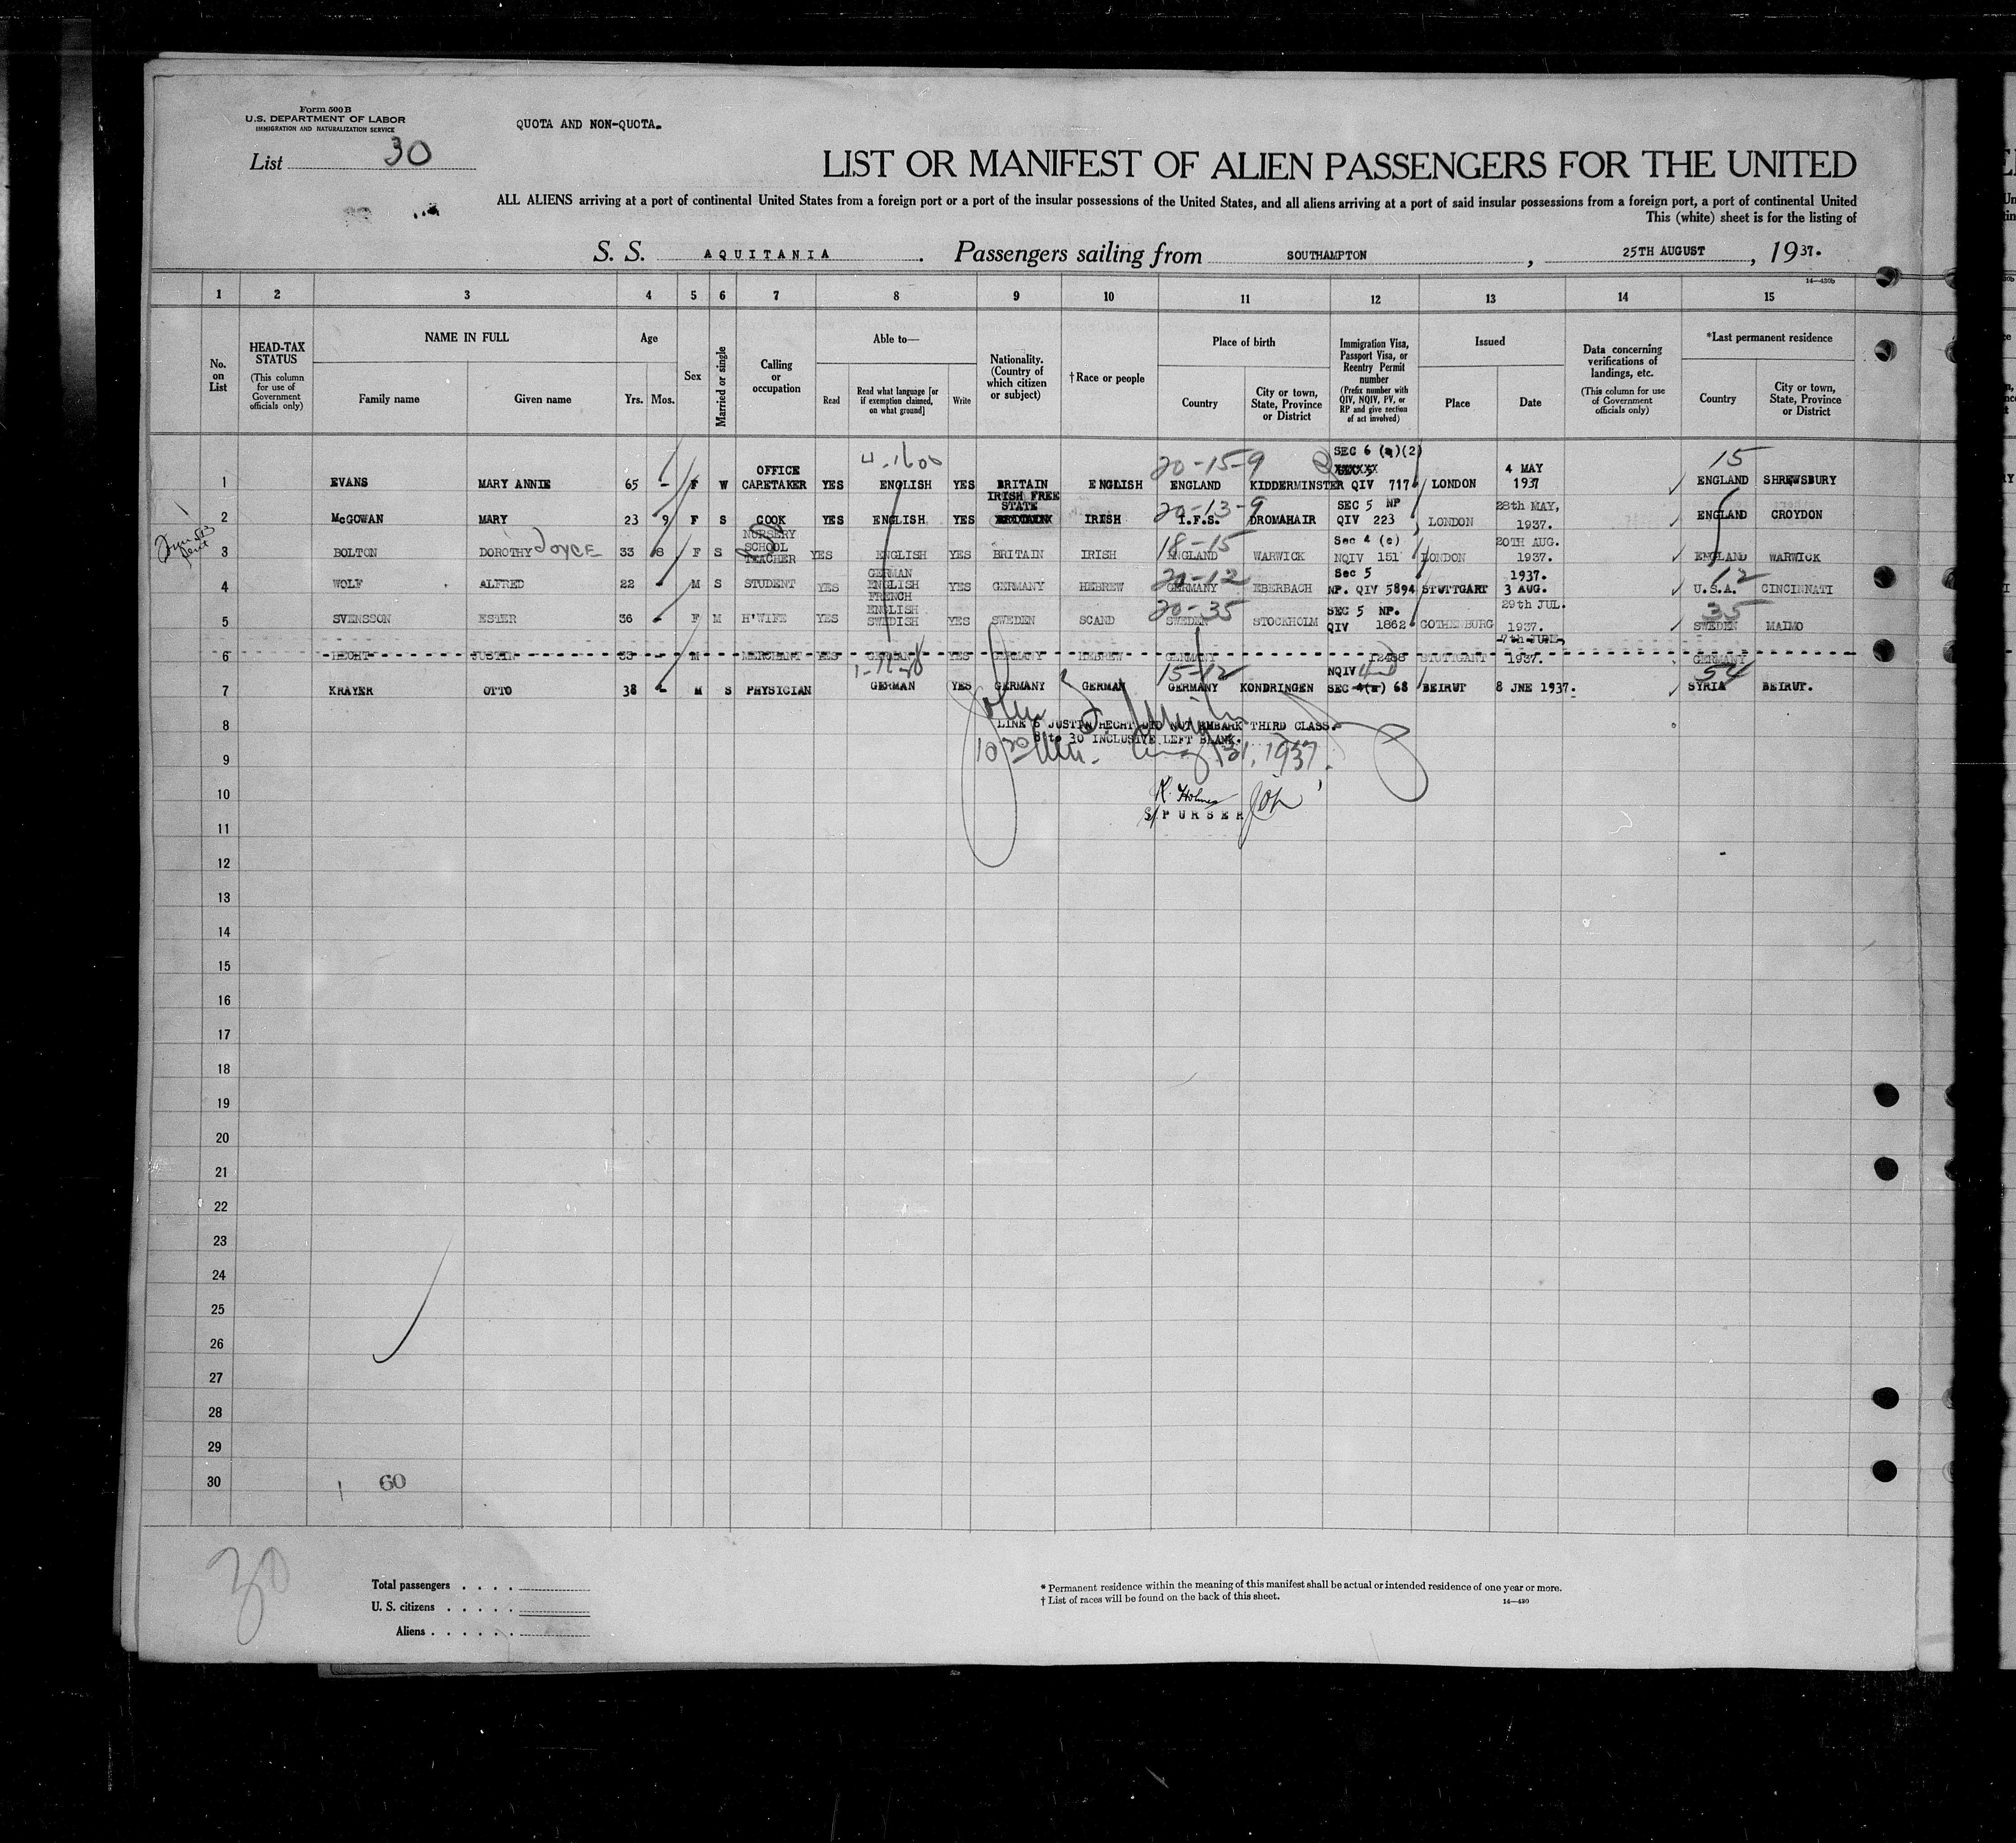 Form 500 B
U.S. DEPARTMENT OF LABOR
IMMIGRATION AND NATURALIZATION SERVICE
QUOTA AND NON-QUOTA.
List 30
LIST OR MANIFEST OF ALIEN PASSENGERS FOR THE UNITED
ALL ALIENS arriving at a port of continental United States from a foreign port or a port of the insular possessions of the United States, and all aliens arriving at a port of said insular possessions from a foreign port, a port of continental United
This (white) sheet is for the listing of
S. S. AQUITANIA. Passengers sailing from SOUTHAMPTON, 25TH AUGUST, 1937.
14—430b
1 2 3 4 5 6 7 8 9 10 11 12 13 14 15
No. on List
HEAD-TAX STATUS (This column for use of Government officials only)
NAME IN FULL
Family name Given name
Age
Yrs. Mos.
Sex
Married or single
Calling or occupation
Able to—
Read Read what language [or if exemption claimed, on what ground] Write
Nationality. (Country of which citizen or subject)
†Race or people
Place of birth
Country City or town, State, Province or District
Immigration Visa, Passport Visa, or Reentry Permit number (Prefix number with QIV, NQIV, PV, or RP and give section of act involved)
Issued
Place Date
Data concerning verifications of landings, etc. (This column for use of Government officials only)
*Last permanent residence
Country City or town, State, Province or District
4-1600 20-15-9 SEC 6 (a)(2) 15
1 EVANS MARY ANNIE 65 - F W OFFICE CARETAKER YES ENGLISH YES BRITAIN ENGLISH ENGLAND KIDDERMINSTER QIV 717 LONDON 4 MAY 1937 ENGLAND SHREWSBURY
20-13-9
2 McGOWAN MARY 23 9 F S COOK YES ENGLISH YES IRISH FREE STATE BRITAIN IRISH I.F.S. DROMAHAIR SEC 5 NP QIV 223 LONDON 28th MAY, 1937. ENGLAND CROYDON
18-15
3 BOLTON DOROTHY JOYCE 33 8 F S NURSERY SCHOOL TEACHER YES ENGLISH YES BRITAIN IRISH ENGLAND WARWICK Sec 4 (c) NQIV 151 LONDON 20TH AUG. 1937. ENGLAND WARWICK
20-12 12
4 WOLF ALFRED 22 M S STUDENT YES GERMAN ENGLISH FRENCH YES GERMANY HEBREW GERMANY EBERBACH Sec 5 NP. QIV 5894 STUTTGART 1937. 3 AUG. U.S.A. CINCINNATI
20-35 35
5 SVENSSON ESTER 36 F M H'WIFE YES ENGLISH SWEDISH YES SWEDEN SCAND SWEDEN STOCKHOLM SEC 5 NP. QIV 1862 GOTHENBURG 29th JUL. 1937. SWEDEN MALMO
6 HECHT JUSTIN 33 - M MERCHANT YES GERMAN YES GERMANY HEBREW GERMANY 12488 STUTTGART 7th JUNE, 1937. GERMANY
15-12 54
7 KRAYER OTTO 38 - M S PHYSICIAN GERMAN YES GERMANY GERMAN GERMANY KONDRINGEN NQIV SEC 4(e) 68 BEIRUT 8 JNE 1937. SYRIA BEIRUT.
8 LINE 6 JUSTIN HECHT DID NOT EMBARK THIRD CLASS.
8 to 30 INCLUSIVE LEFT BLANK.
Aug 31, 1937.
9
10 K. Holmes
S/PURSER
11
12
13
14
15
16
17
18
19
20
21
22
23
24
25
26
27
28
29
30 60
30
Total passengers . . . .
U. S. citizens . . . . .
Aliens . . . . . .
* Permanent residence within the meaning of this manifest shall be actual or intended residence of one year or more.
† List of races will be found on the back of this sheet.
14—430